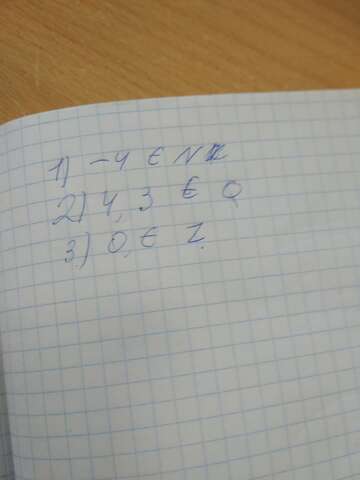 1) -4 ∈ N
2) 4,3 ∈ Q
3) 0 ∈ Z